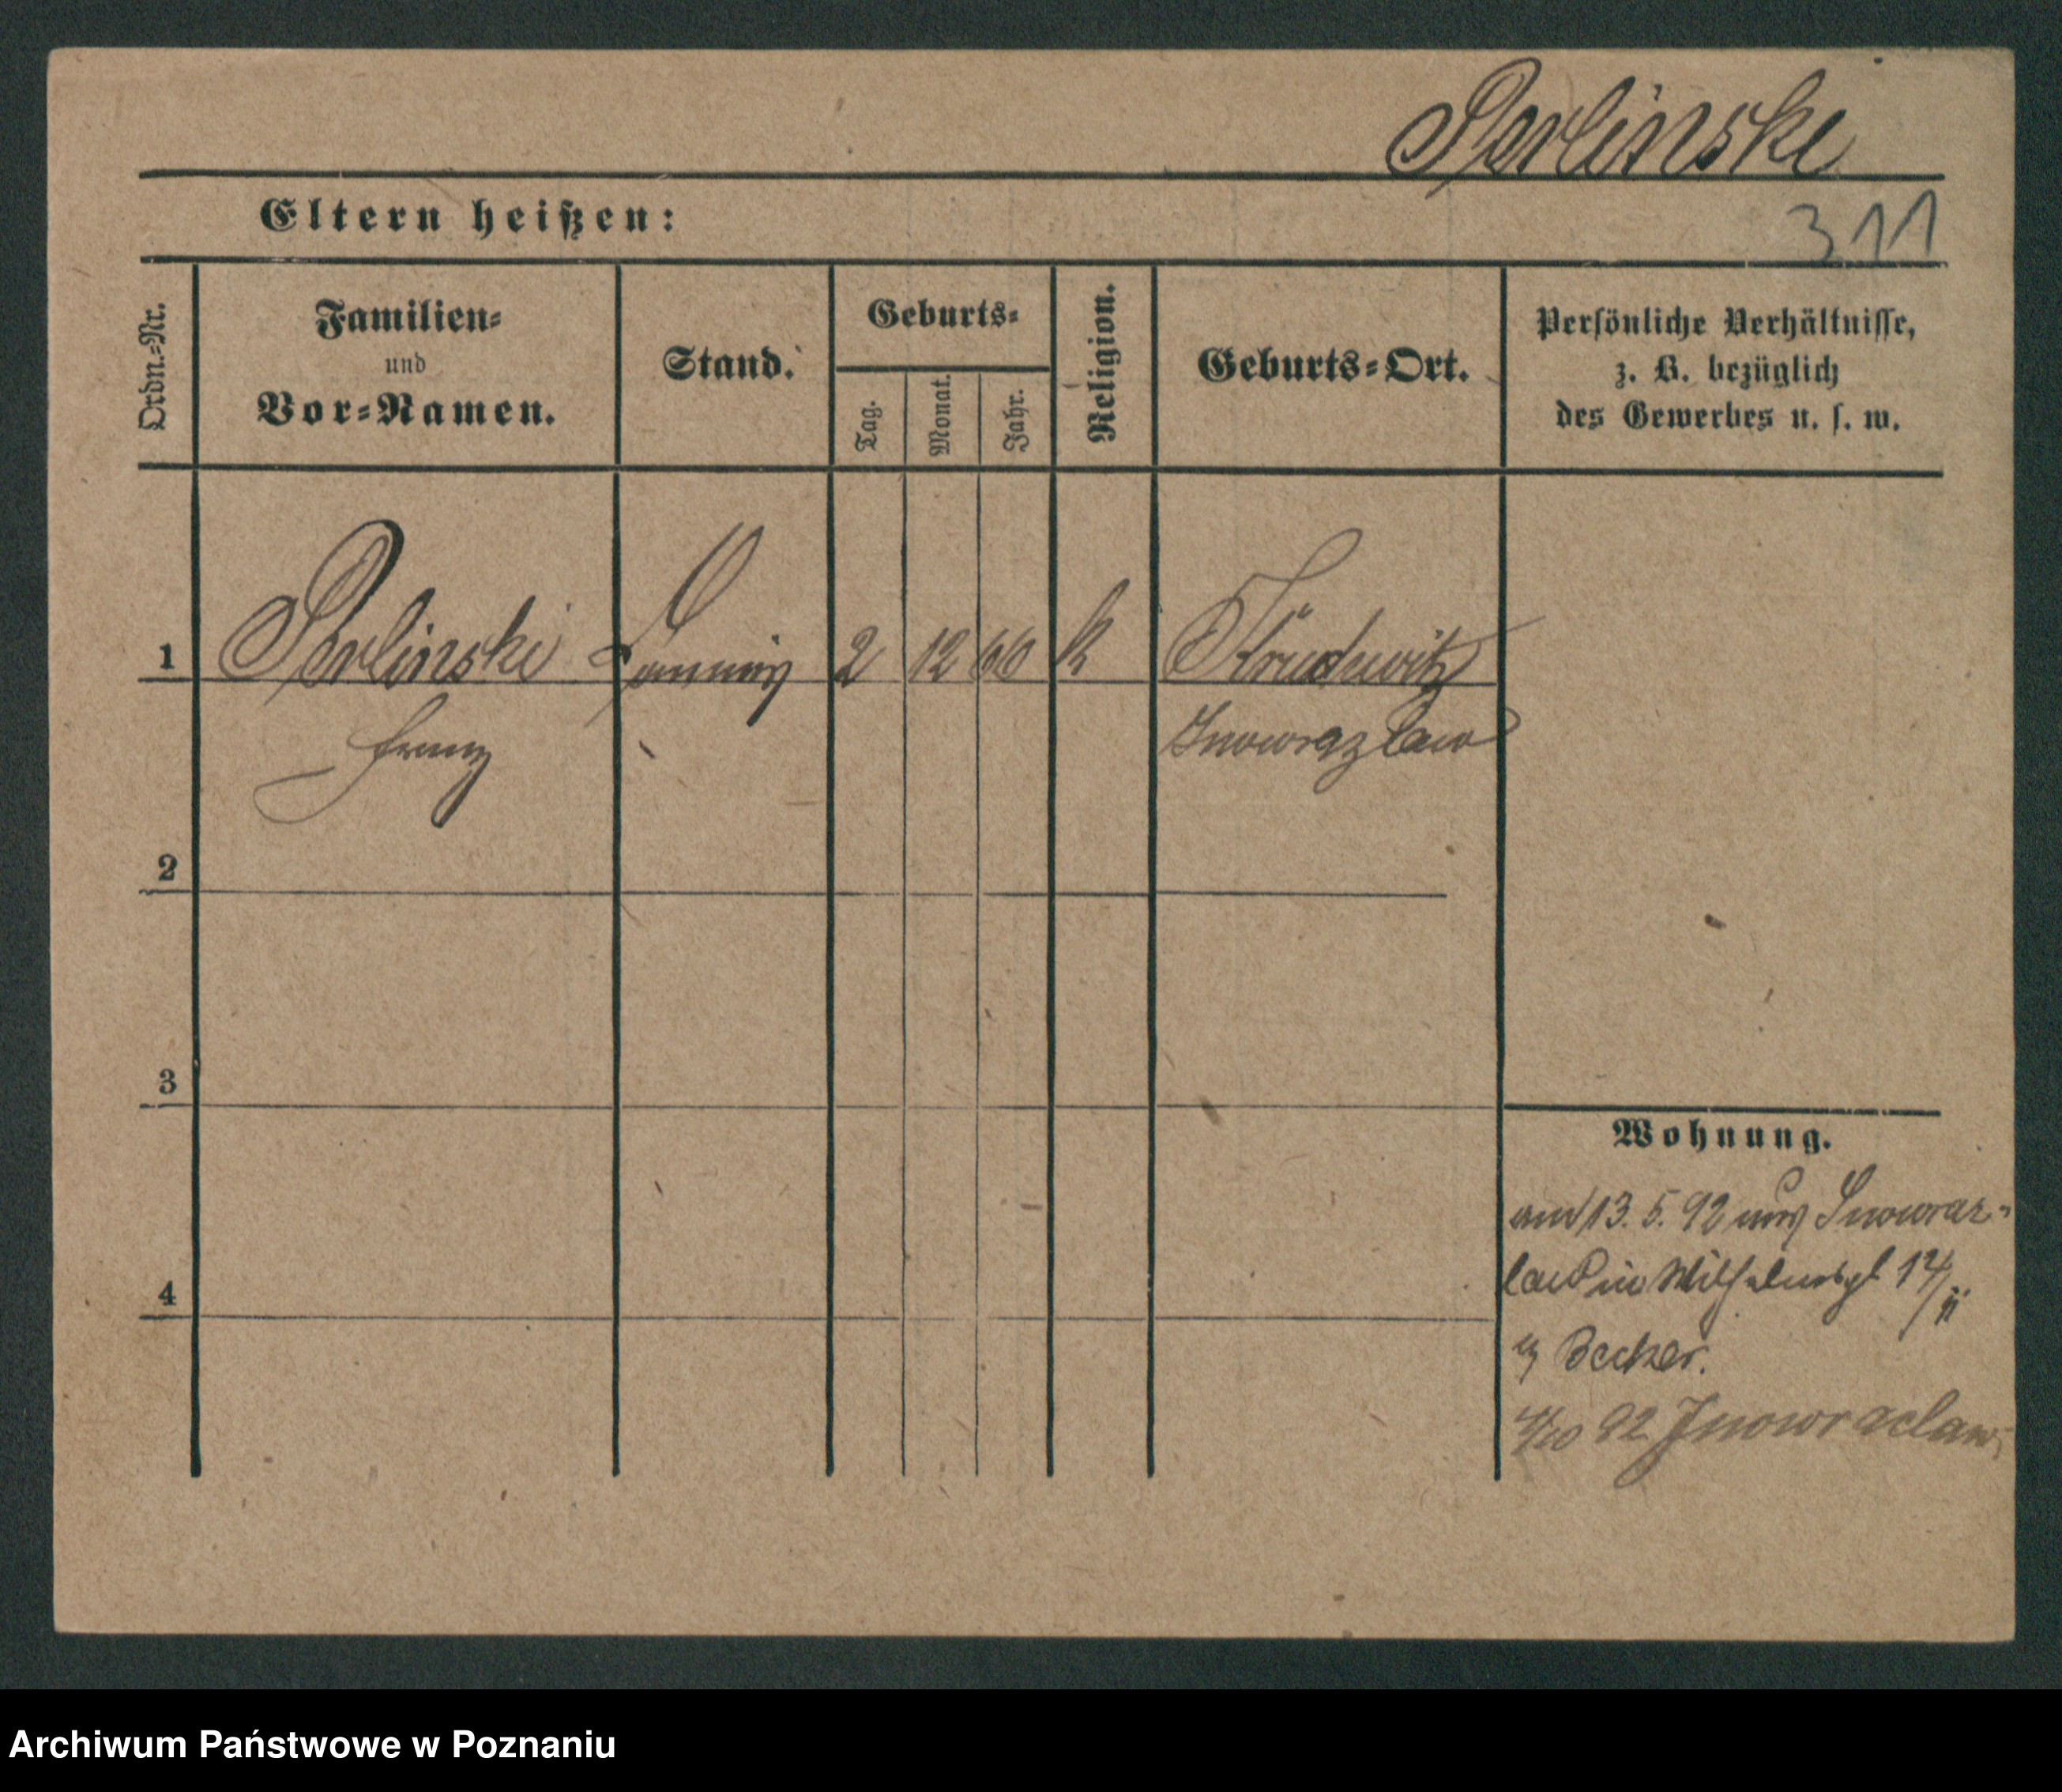 Perlinski
Eltern heißen:
311
Ordn.-Nr.
Familien-
und
Vor-Namen.
Stand.
Geburts-
Tag.
Monat.
Jahr.
Religion.
Geburts-Ort.
Persönliche Verhältnisse,
z. B. bezüglich
des Gewerbes u. s. w.
1
Perlinski
2
12
60
k
Franz
Inowrazlaw
2
3
Wohnung.
am 13. 5. 92 aus Inowraz-
law in Wilhelmspl 14/II
4
b Becker.
92 Inowraclaw
Archiwum Państwowe w Poznaniu